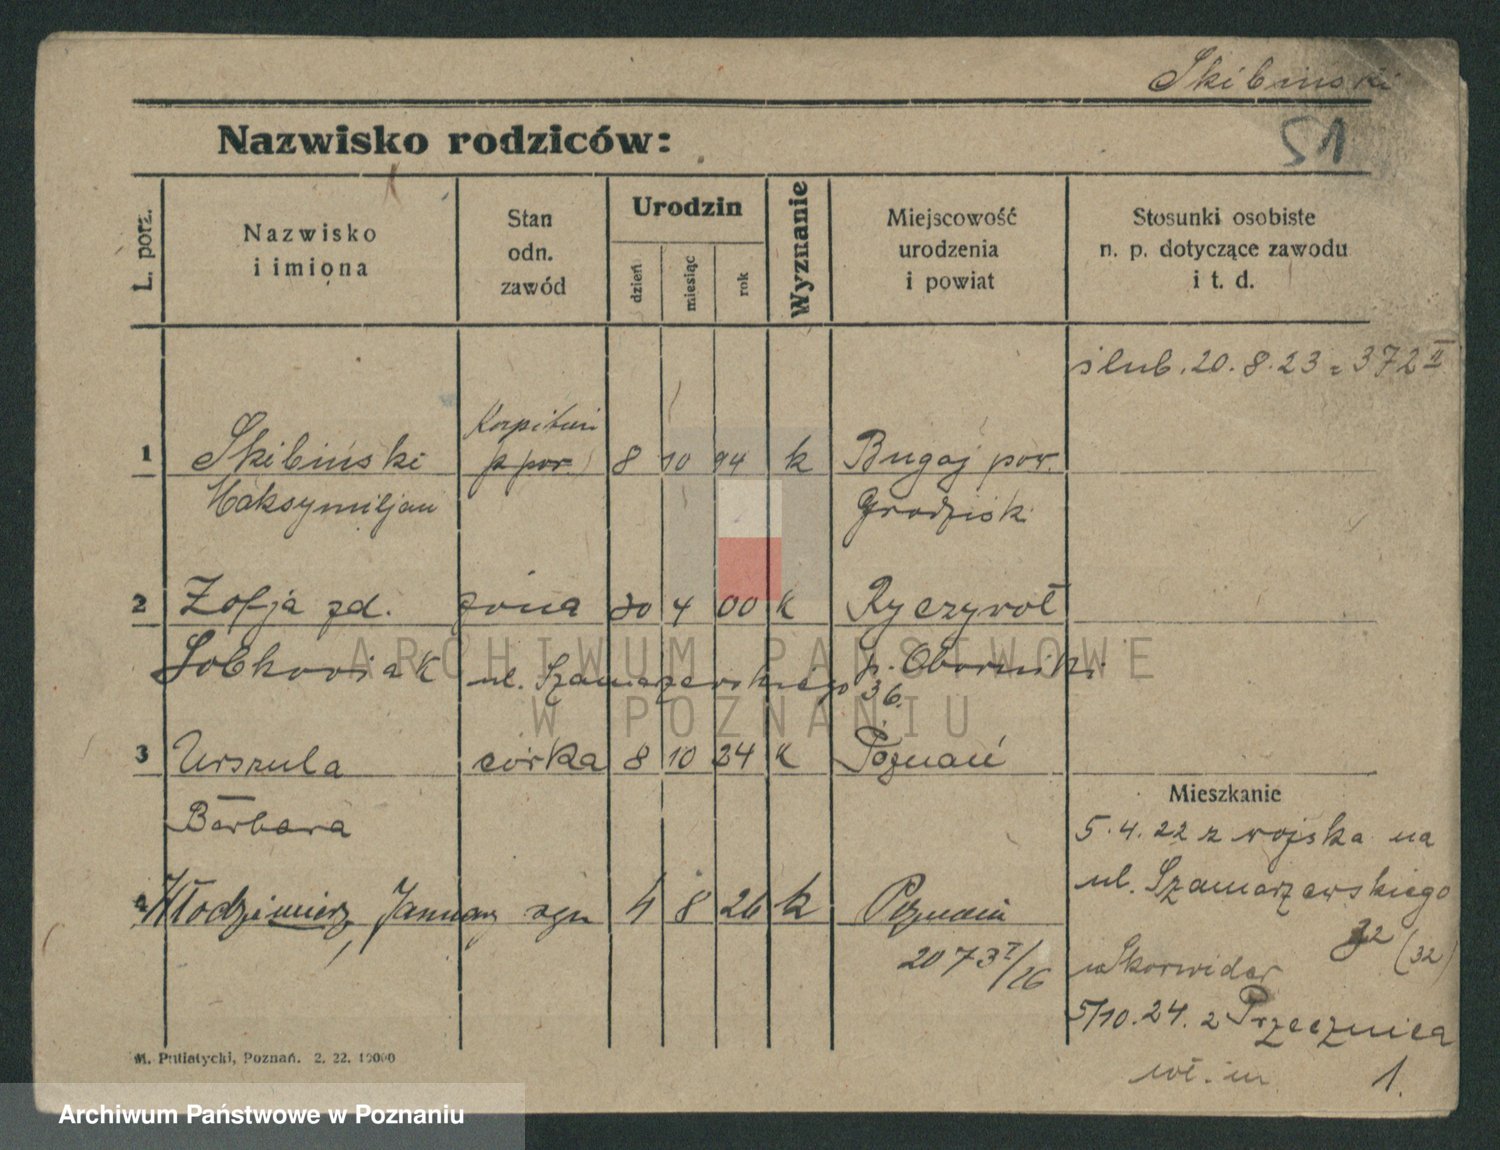 Skibiński
51
Nazwisko rodziców:
L. porz.
Nazwisko
i imiona
Stan
odn.
zawód
Urodzin
dzień
miesiąc
rok
Wyznanie
Miejscowość
urodzenia
i powiat
Stosunki osobiste
n. p. dotyczące zawodu
i t. d.
ślub. 20.8.23 = 372 II
1 Skibiński p por 8 10 94 k Bugaj pow.
Maksymiljan Grodzisk
2 Zofja zd. żona 30 4 00 k Ryczywół
Sobkowiak ul. Szamarzewskiego 36. p. Oborniki
3 Urszula córka 8 10 24 k Poznań
Barbara
4 Włodzimierz, January syn 4 8 26 k Poznań
2073 I/26
Mieszkanie
5.4.22 z wojska na
ul. Szamarzewskiego
32 (32)
u Skorwider
5/10.24. z Przecznica
wł. m 1.
M. Putiatycki, Poznań. 2. 22. 10000
ARCHIWUM PAŃSTWOWE
W POZNANIU
Archiwum Państwowe w Poznaniu